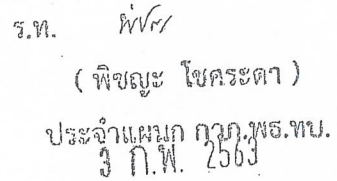 ร.ท.
( พิชญะ โชคระดา )
ประจำแผนก กวภ.พธ.ทบ.
3 ก.พ. 2563